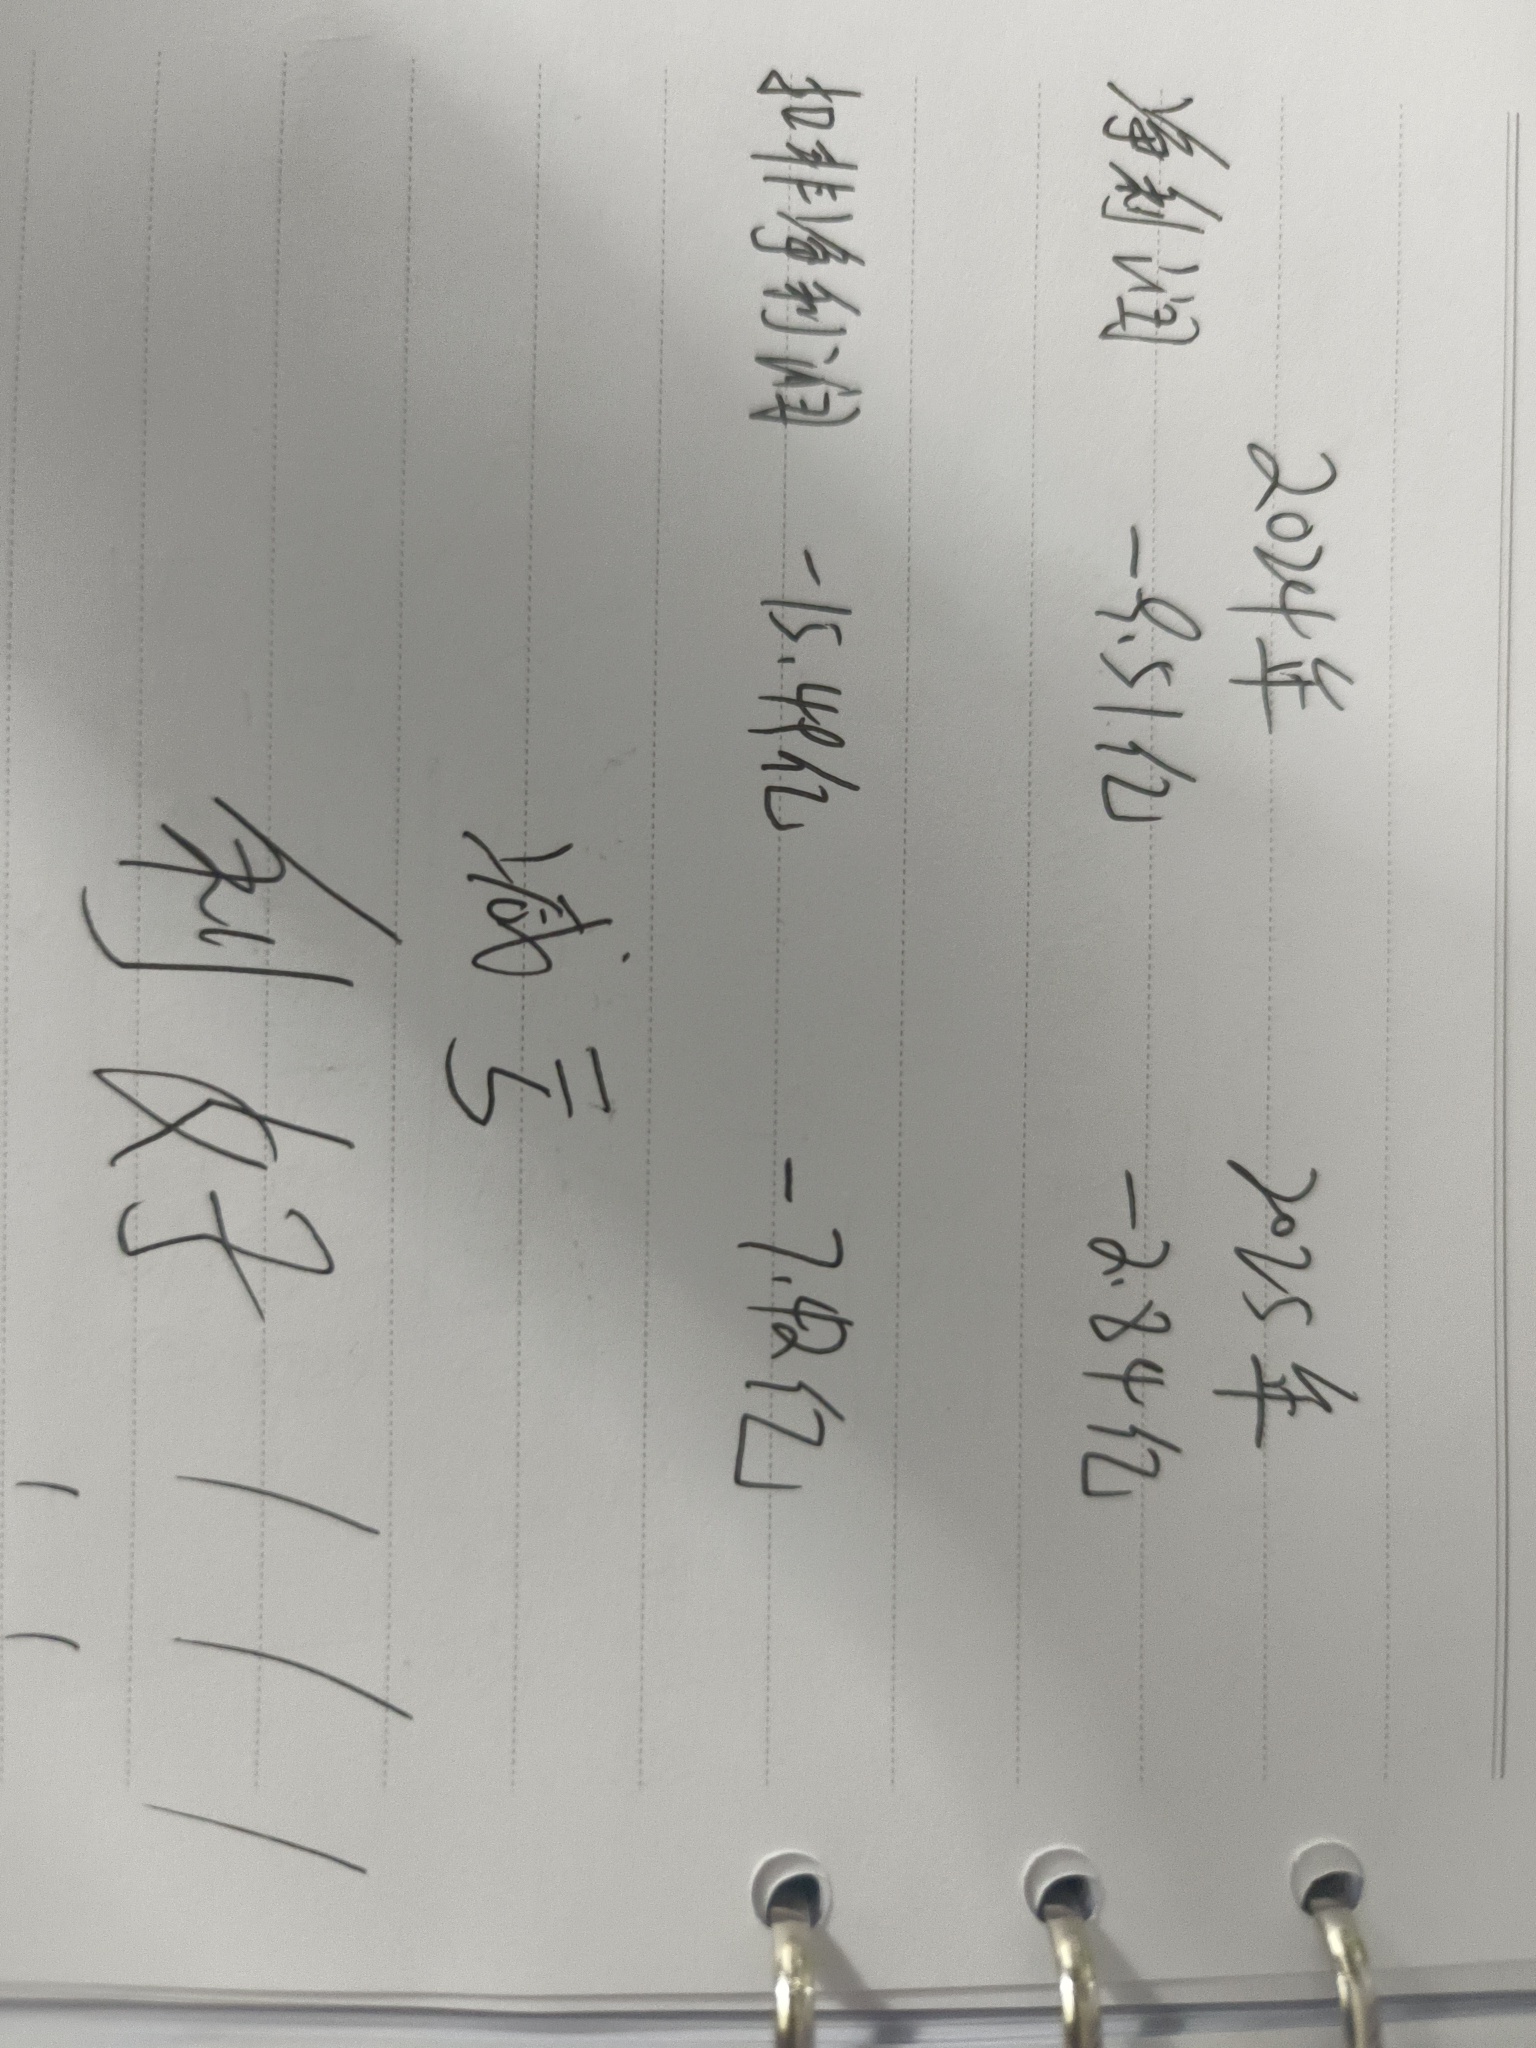 2024年 2025年
净利润 -9.51亿 -2.84亿
扣非净利润 -15.49亿 -7.42亿
减亏
利好!!!